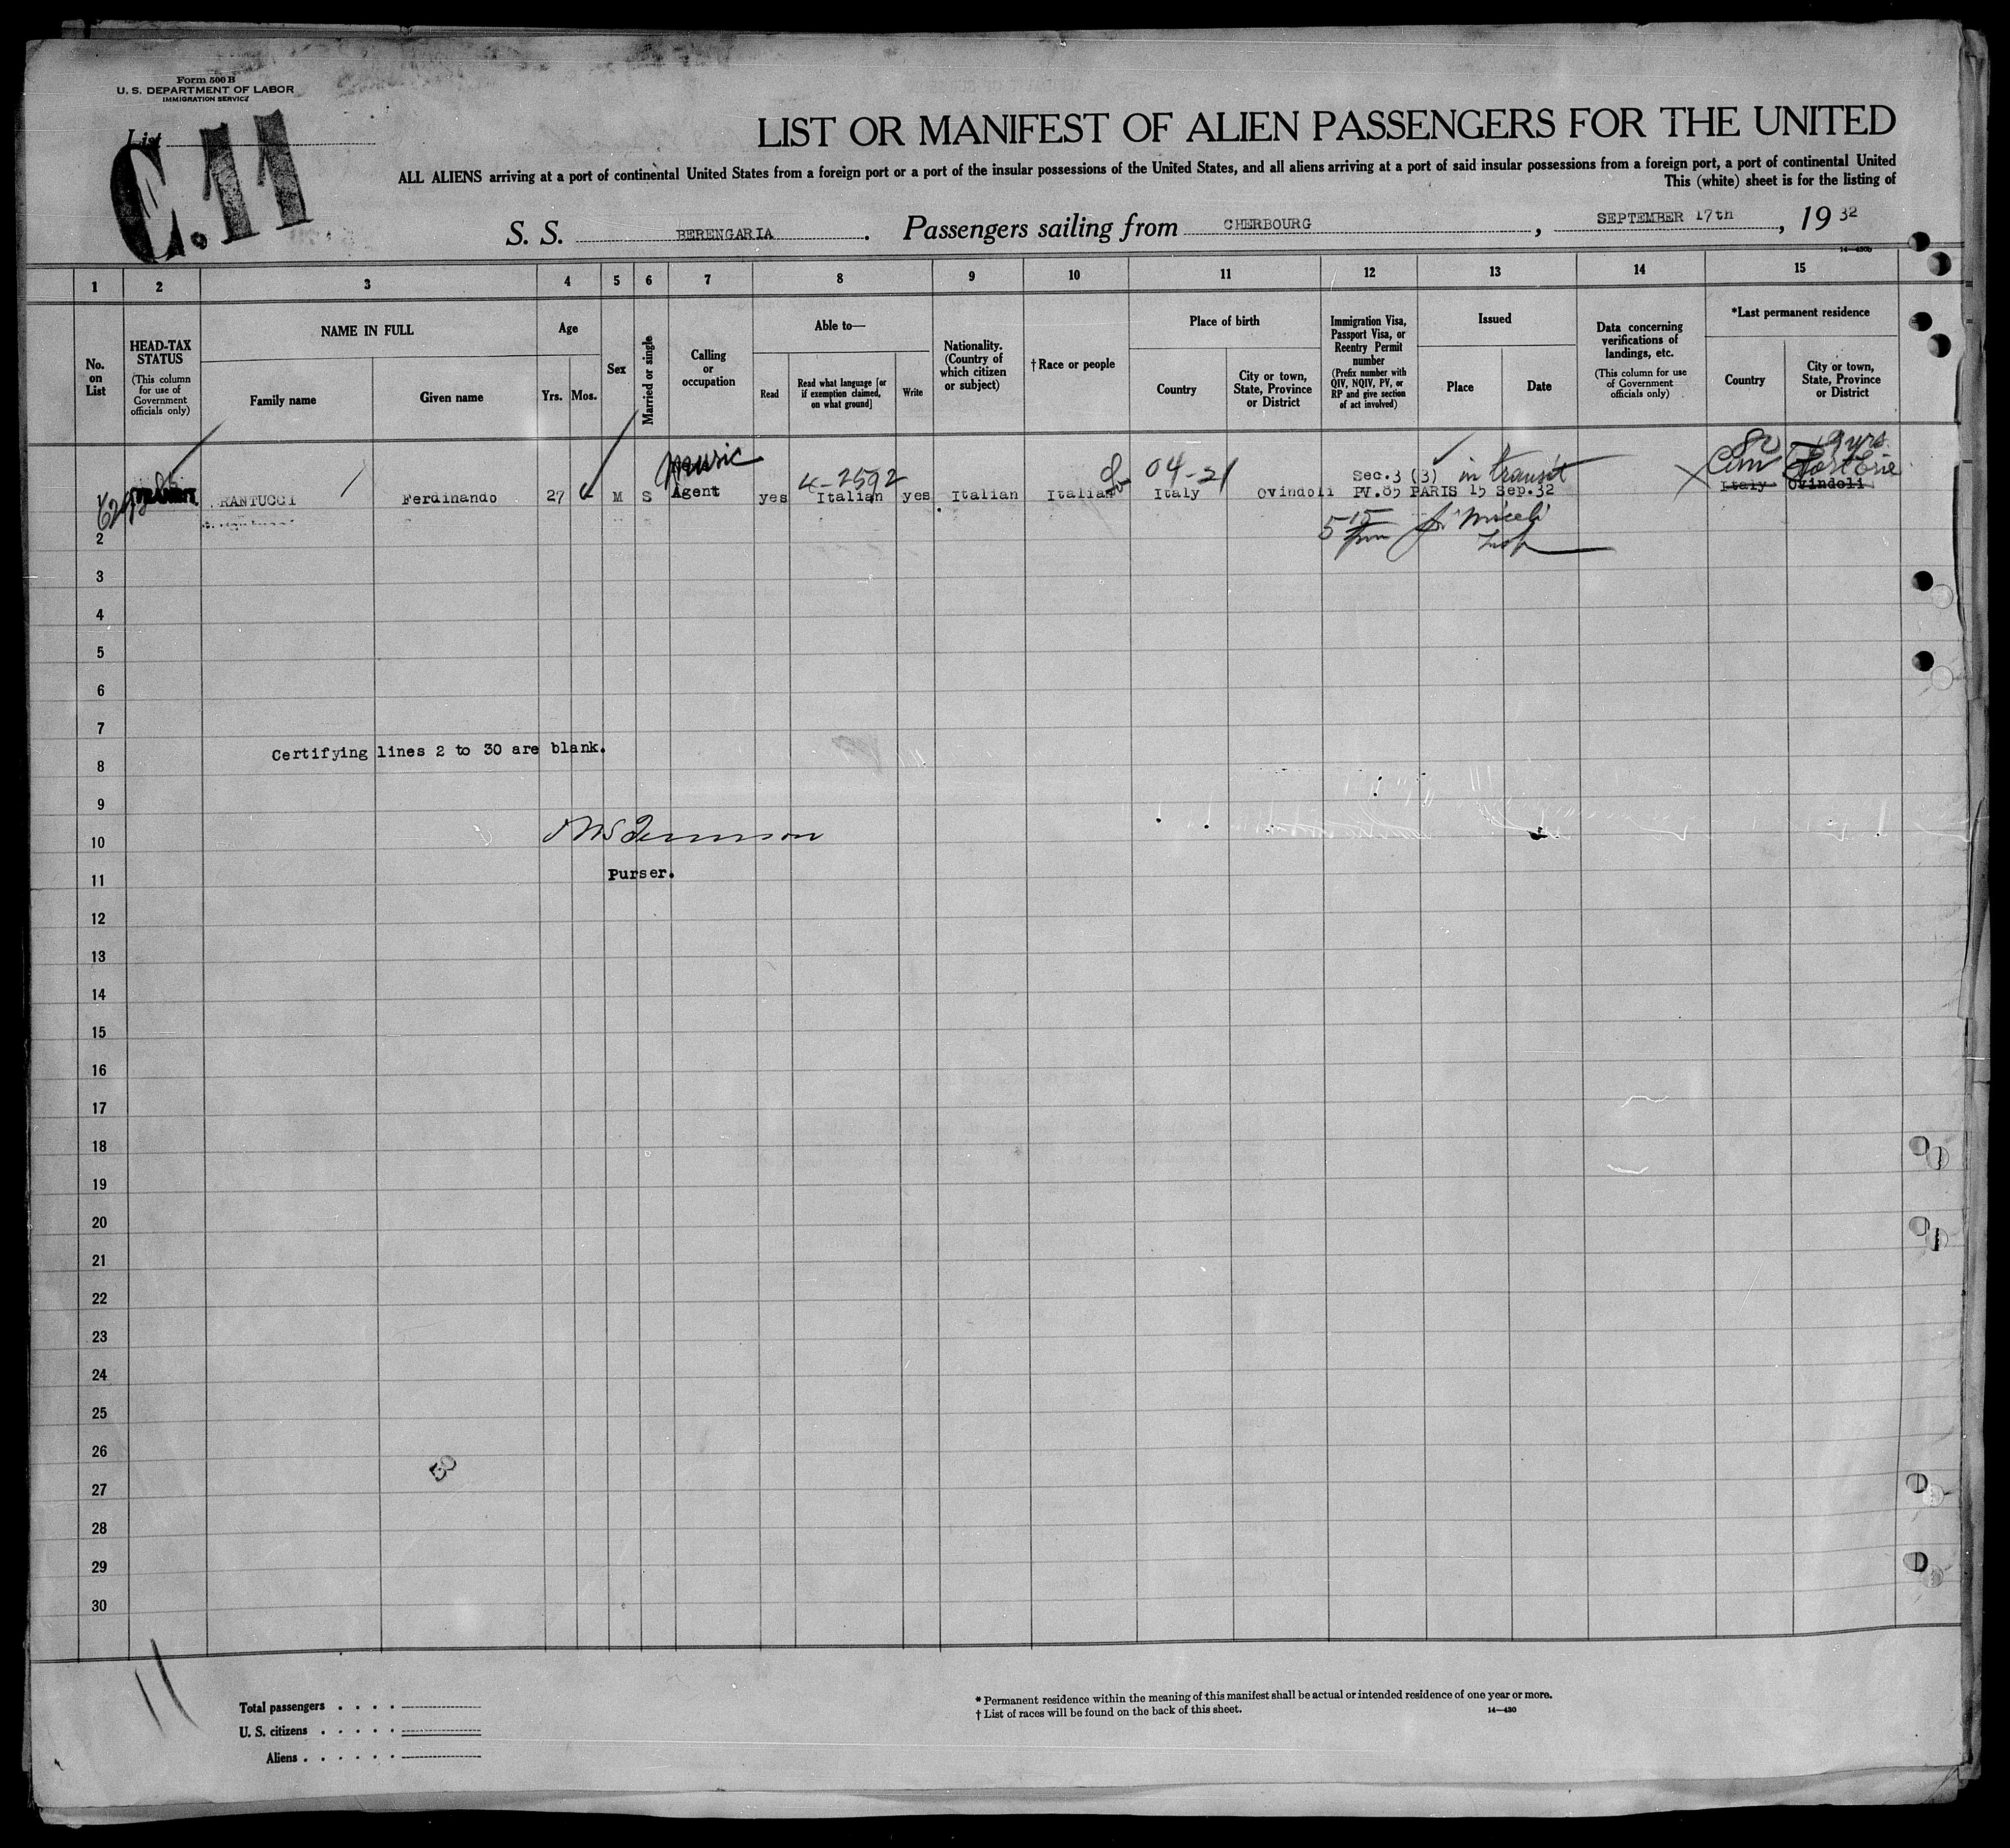 Form 500 B
U. S. DEPARTMENT OF LABOR
IMMIGRATION SERVICE
List
C.11
LIST OR MANIFEST OF ALIEN PASSENGERS FOR THE UNITED
ALL ALIENS arriving at a port of continental United States from a foreign port or a port of the insular possessions of the United States, and all aliens arriving at a port of said insular possessions from a foreign port, a port of continental United
This (white) sheet is for the listing of
S. S. BERENGARIA. Passengers sailing from CHERBOURG, SEPTEMBER 17th, 19 32
14—430b
1 2 3 4 5 6 7 8 9 10 11 12 13 14 15
No. on List
HEAD-TAX STATUS
(This column for use of Government officials only)
NAME IN FULL
Family name
Given name
Age
Yrs.
Mos.
Sex
Married or single
Calling or occupation
Able to—
Read
Read what language [or if exemption claimed, on what ground]
Write
Nationality. (Country of which citizen or subject)
†Race or people
Place of birth
Country
City or town, State, Province or District
Immigration Visa, Passport Visa, or Reentry Permit number
(Prefix number with QIV, NQIV, PV, or RP and give section of act involved)
Issued
Place
Date
Data concerning verifications of landings, etc.
(This column for use of Government officials only)
*Last permanent residence
Country
City or town, State, Province or District
music 4-2592 04-21 Sec.3 (3) in transit Can Fort Erie 9 yrs
TRANSIT RANTUCCI Ferdinando 27 M S Agent yes Italian yes Italian Italian Italy Ovindoli PV.85 PARIS 15 Sep.32 Italy Ovindoli
5 15 pm
2
3
4
5
6
7
Certifying lines 2 to 30 are blank.
8
9
10
Purser.
11
12
13
14
15
16
17
18
19
20
21
22
23
24
25
26
50
27
28
29
30
11
Total passengers . . . .
U. S. citizens . . . . .
Aliens . . . . . .
* Permanent residence within the meaning of this manifest shall be actual or intended residence of one year or more.
† List of races will be found on the back of this sheet.
14—430